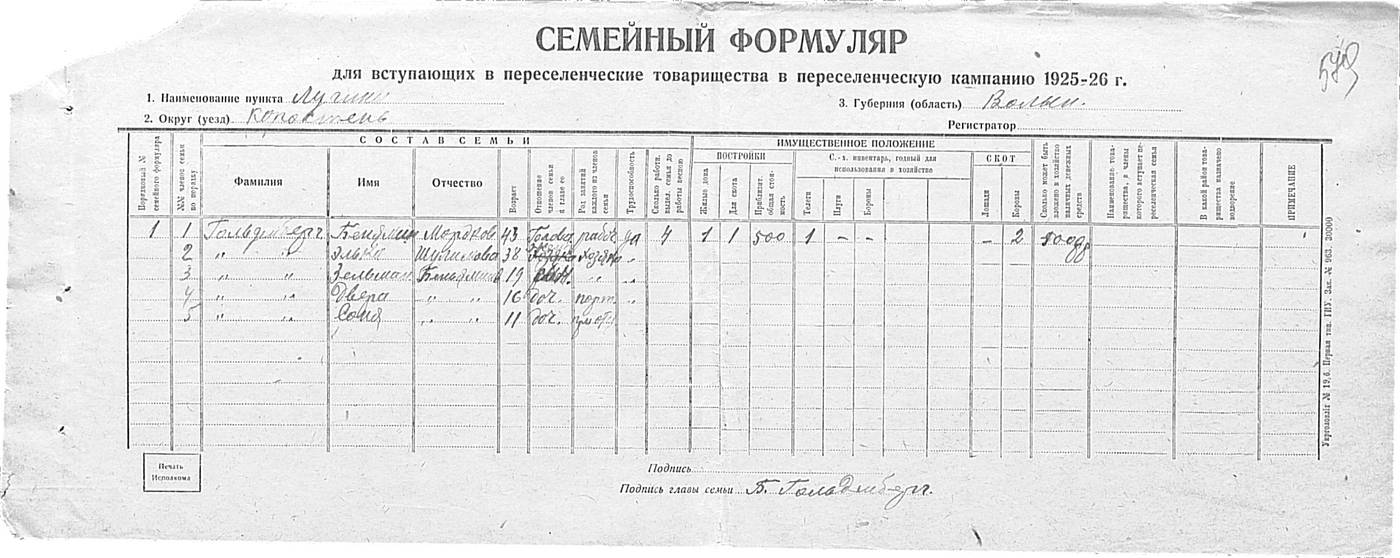 СЕМЕЙНЫЙ ФОРМУЛЯР
549
для вступающих в переселенческие товарищества в переселенческую кампанию 1925-26 г.
1. Наименование пункта Лугины
3. Губерния (область) Волын.
2. Округ (уезд) Коростень
Регистратор
СОСТАВ СЕМЬИ
ИМУЩЕСТВЕННОЕ ПОЛОЖЕНИЕ
Порядковый № семейного формуляра
№№ членов семьи по порядку
Фамилия
Имя
Отчество
Возраст
Отношение членов семьи к главе ее
Род занятий каждого из членов семьи
Трудоспособность
Сколько работн. выдел. семья до работы весною
ПОСТРОЙКИ
Жилые дома
Для скота
Приблизит. общая стоимость
С.-х. инвентарь, годный для использования в хозяйстве
Телеги
Плуги
Бороны
СКОТ
Лошади
Коровы
Сколько может быть вложено в хозяйство наличных денежных средств
Наименование товарищества, в члены которого вступает переселенческая семья
В какой район товарищества назначено водворение
ПРИМЕЧАНИЕ
1 1 Гольденберг Бенямин Мордков 43 Голова работ. да 4 1 1 500 1 – – – 2 500р
2 " " Элька 38 хозяйка "
3 " " Зельман Беньяминов 19 " "
4 " " Двера " " 16 доч. порт. "
5 " " Соня " " 11 доч.
Печать Исполкома
Подпись
Подпись главы семьи Б. Гольденберг.
Укрголовліт № 19, б. Первая тип. ГПУ. Зак. № 963. 30000